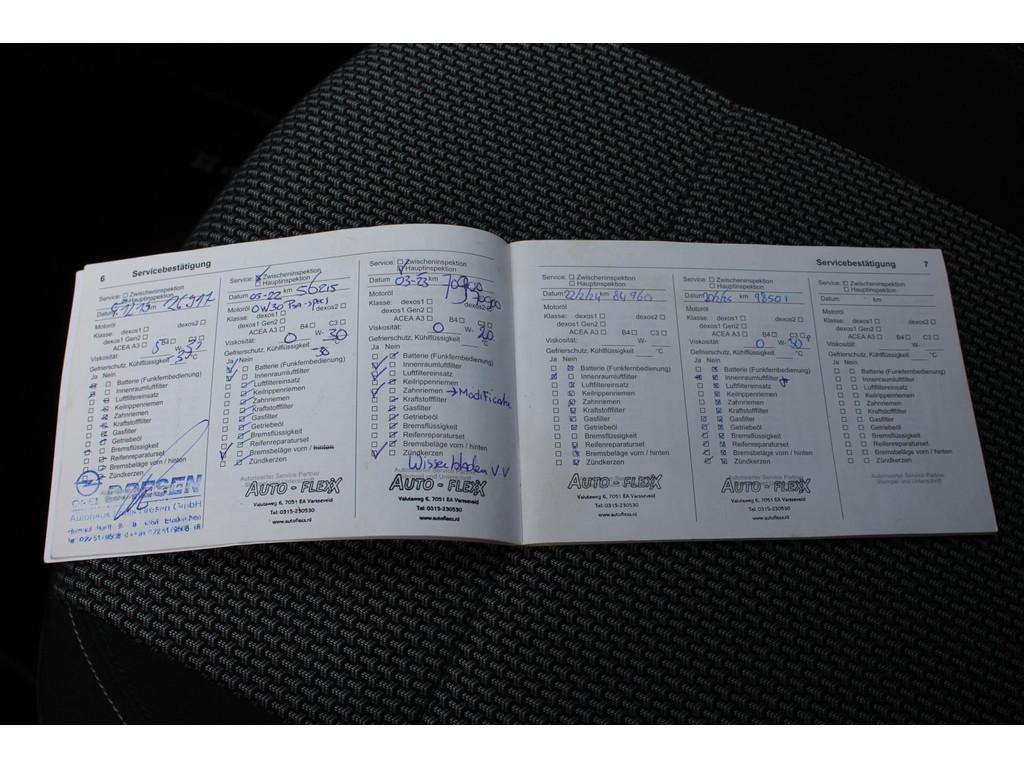 6 Servicebestätigung
Service: ☐ Zwischeninspektion
☐ Hauptinspektion
Datum km 26911
Motoröl
Klasse: dexos1 ☐ dexos2 ☐
dexos1 Gen2 ☐
ACEA A3 ☐ B4 ☐ C3 ☐
Viskosität: W-
Gefrierschutz, Kühlflüssigkeit °C
Ja Nein
Batterie (Funkfernbedienung)
Innenraumluftfilter
Luftfiltereinsatz
Keilrippenriemen
Zahnriemen
Kraftstofffilter
Gasfilter
Getriebeöl
Bremsflüssigkeit
Reifenreparaturset
Bremsbeläge vorn / hinten
Zündkerzen
Service: Zwischeninspektion
☐ Hauptinspektion
Datum 05-22 km 56215
Motoröl 0W30
Klasse: dexos1 ☐ dexos2 ☐
dexos1 Gen2 ☐
ACEA A3 ☐ B4 ☐ C3 ☐
Viskosität: 0 W- 30
Gefrierschutz, Kühlflüssigkeit -36 °C
Ja Nein
Batterie (Funkfernbedienung)
Innenraumluftfilter
Luftfiltereinsatz
Keilrippenriemen
Zahnriemen
Kraftstofffilter
Gasfilter
Getriebeöl
Bremsflüssigkeit
Reifenreparaturset
Bremsbeläge vorn / hinten
Zündkerzen
Autorisierter Service-Partner
AUTO-FLEXX
Valutaweg 6, 7051 EA Varsseveld
Tel: 0315-230530
www.autoflexx.nl
Service: ☐ Zwischeninspektion
Hauptinspektion
Datum 03-23 km 70900
70900
Motoröl
Klasse: dexos1 ☐ dexos2 ☐
dexos1 Gen2 ☐
ACEA A3 ☐ B4 ☐ C3 ☐
Viskosität: 0 W- 20
Gefrierschutz, Kühlflüssigkeit °C
Ja Nein
Batterie (Funkfernbedienung)
Innenraumluftfilter
Luftfiltereinsatz
Keilrippenriemen
Zahnriemen → Modificatie
Kraftstofffilter
Gasfilter
Getriebeöl
Bremsflüssigkeit
Reifenreparaturset
Bremsbeläge vorn / hinten
Zündkerzen Wisserbladen V.V
AUTO-FLEXX
Valutaweg 6, 7051 EA Varsseveld
Tel: 0315-230530
www.autoflexx.nl
Servicebestätigung 7
Service: ☐ Zwischeninspektion
☐ Hauptinspektion
Datum 22/2/24 km 84960
Motoröl
Klasse: dexos1 ☐ dexos2 ☐
dexos1 Gen2 ☐
ACEA A3 ☐ B4 ☐ C3 ☐
Viskosität: W-
Gefrierschutz, Kühlflüssigkeit °C
Ja Nein
Batterie (Funkfernbedienung)
Innenraumluftfilter
Luftfiltereinsatz
Keilrippenriemen
Zahnriemen
Kraftstofffilter
Gasfilter
Getriebeöl
Bremsflüssigkeit
Reifenreparaturset
Bremsbeläge vorn / hinten
Zündkerzen
AUTO-FLEXX
Valutaweg 6, 7051 EA Varsseveld
Tel: 0315-230530
www.autoflexx.nl
Service: ☐ Zwischeninspektion
☐ Hauptinspektion
Datum km 98501
Motoröl
Klasse: dexos1 ☐ dexos2 ☐
dexos1 Gen2 ☐
ACEA A3 ☐ B4 ☐ C3 ☐
Viskosität: 0 W- 30
Gefrierschutz, Kühlflüssigkeit °C
Ja Nein
Batterie (Funkfernbedienung)
Innenraumluftfilter
Luftfiltereinsatz
Keilrippenriemen
Zahnriemen
Kraftstofffilter
Gasfilter
Getriebeöl
Bremsflüssigkeit
Reifenreparaturset
Bremsbeläge vorn / hinten
Zündkerzen
AUTO-FLEXX
Valutaweg 6, 7051 EA Varsseveld
Tel: 0315-230530
www.autoflexx.nl
Service: ☐ Zwischeninspektion
☐ Hauptinspektion
Datum km
Motoröl
Klasse: dexos1 ☐ dexos2 ☐
dexos1 Gen2 ☐
ACEA A3 ☐ B4 ☐ C3 ☐
Viskosität: W-
Gefrierschutz, Kühlflüssigkeit °C
Ja Nein
☐ ☐ Batterie (Funkfernbedienung)
☐ ☐ Innenraumluftfilter
☐ ☐ Luftfiltereinsatz
☐ ☐ Keilrippenriemen
☐ ☐ Zahnriemen
☐ ☐ Kraftstofffilter
☐ ☐ Gasfilter
☐ ☐ Getriebeöl
☐ ☐ Bremsflüssigkeit
☐ ☐ Reifenreparaturset
☐ ☐ Bremsbeläge vorn / hinten
☐ ☐ Zündkerzen
Autorisierter Service-Partner
(Stempel und Unterschrift)